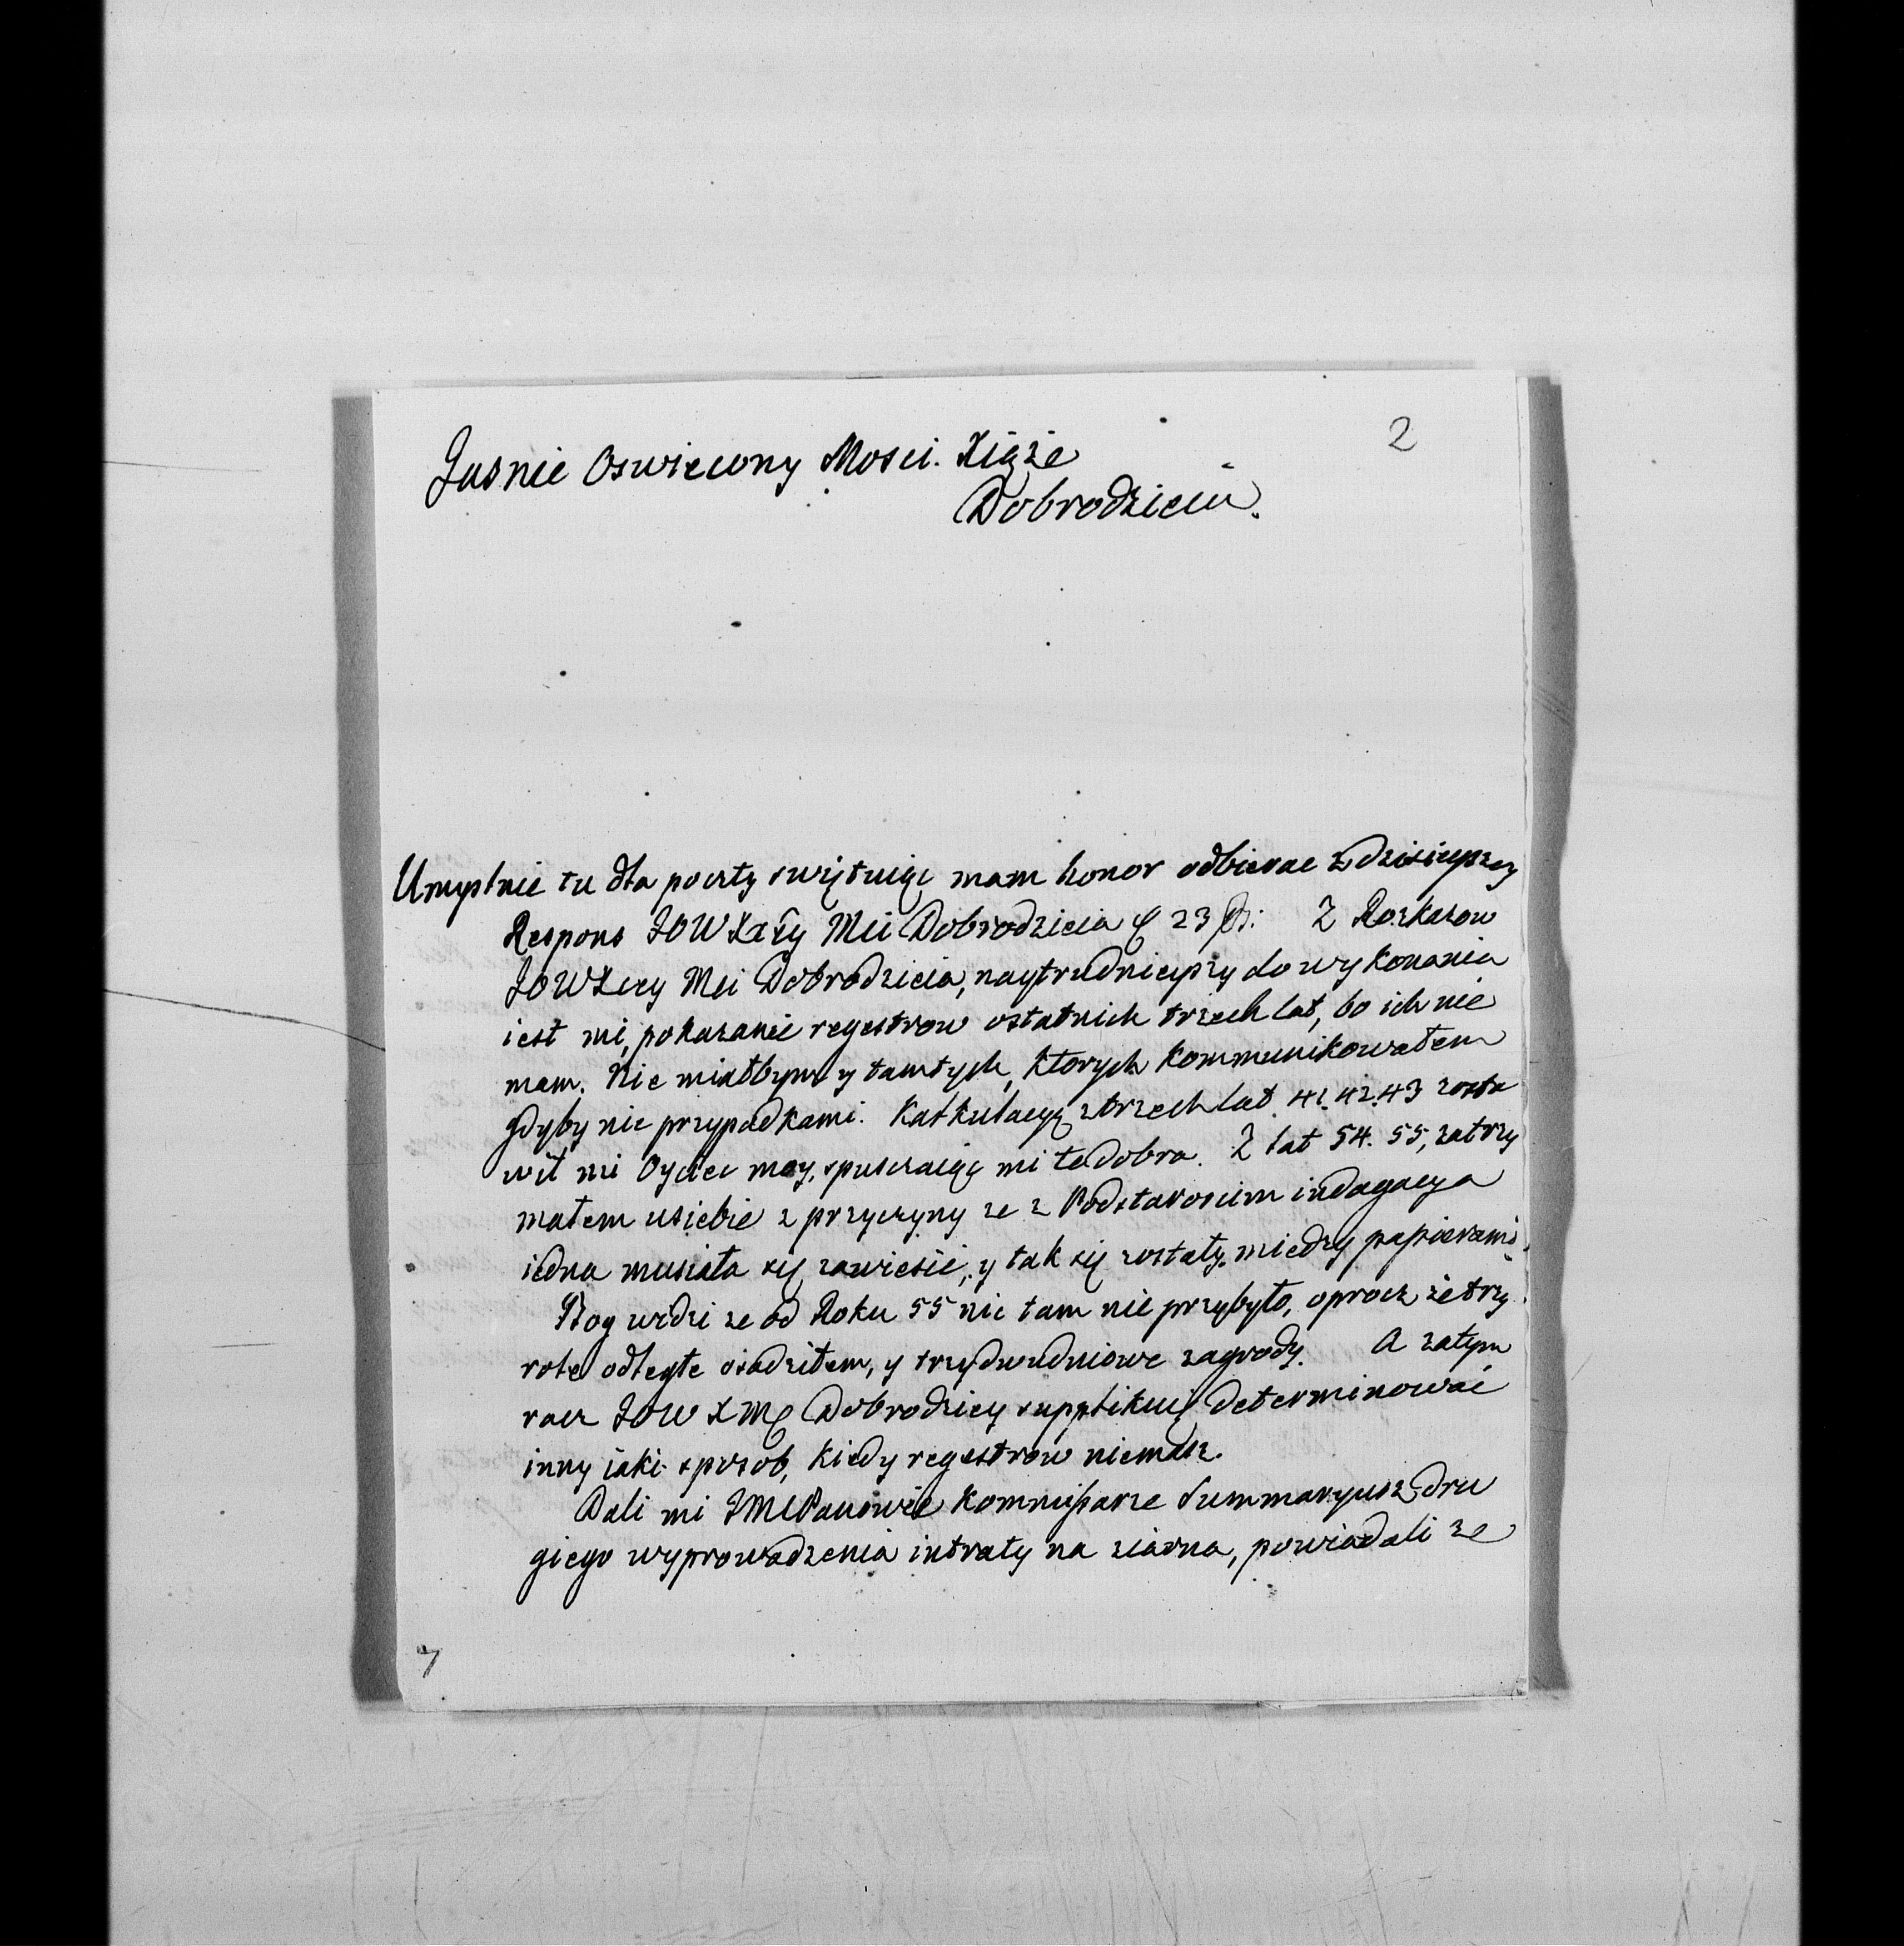 2
Jasnie Oswiecony Mosci Xiąże
Dobrodzieiu.
Umyslnie tu dla poczty swiętuiąc mam honor odbierac dzisieyszy
Respons JOWXcy Mci Dobrodzieia 23 Z Rozkazow
JOWXcey Mci Dobrodzieia, naytrudnieyszy do wykonania
iest mi, pokazanie regestrow ostatnich trzech lat, bo ich nie
mam. Nie miałbym y tamtych, ktorych kommunikowałem
gdyby nie przypadkami. Kalkulacyą z trzech lat 41. 42. 43 zosta
wił mi Oyciec moy, spuszczaiąc mi te dobra. Z lat 54. 55, zatrzy
małem usiebie z przyczyny ze z Podstaroscim indagacya
iedna musiała się zawiesić, y tak się zostały między papierami.
Bog widzi ze od Roku 55 nic tam nie przybyło, oprocz że trzy
role odległe osadziłem, y trzy dwudniowe zagrody. A zatym
racz JOWXMę Dobrodziey supplikuię determinować
inny iaki sposob, kiedy regestrow niemasz.
Dali mi JMCPanowie Kommissarze Summaryusz dru
giego wyprowadzenia intraty na ziarna, powiadali ze
7